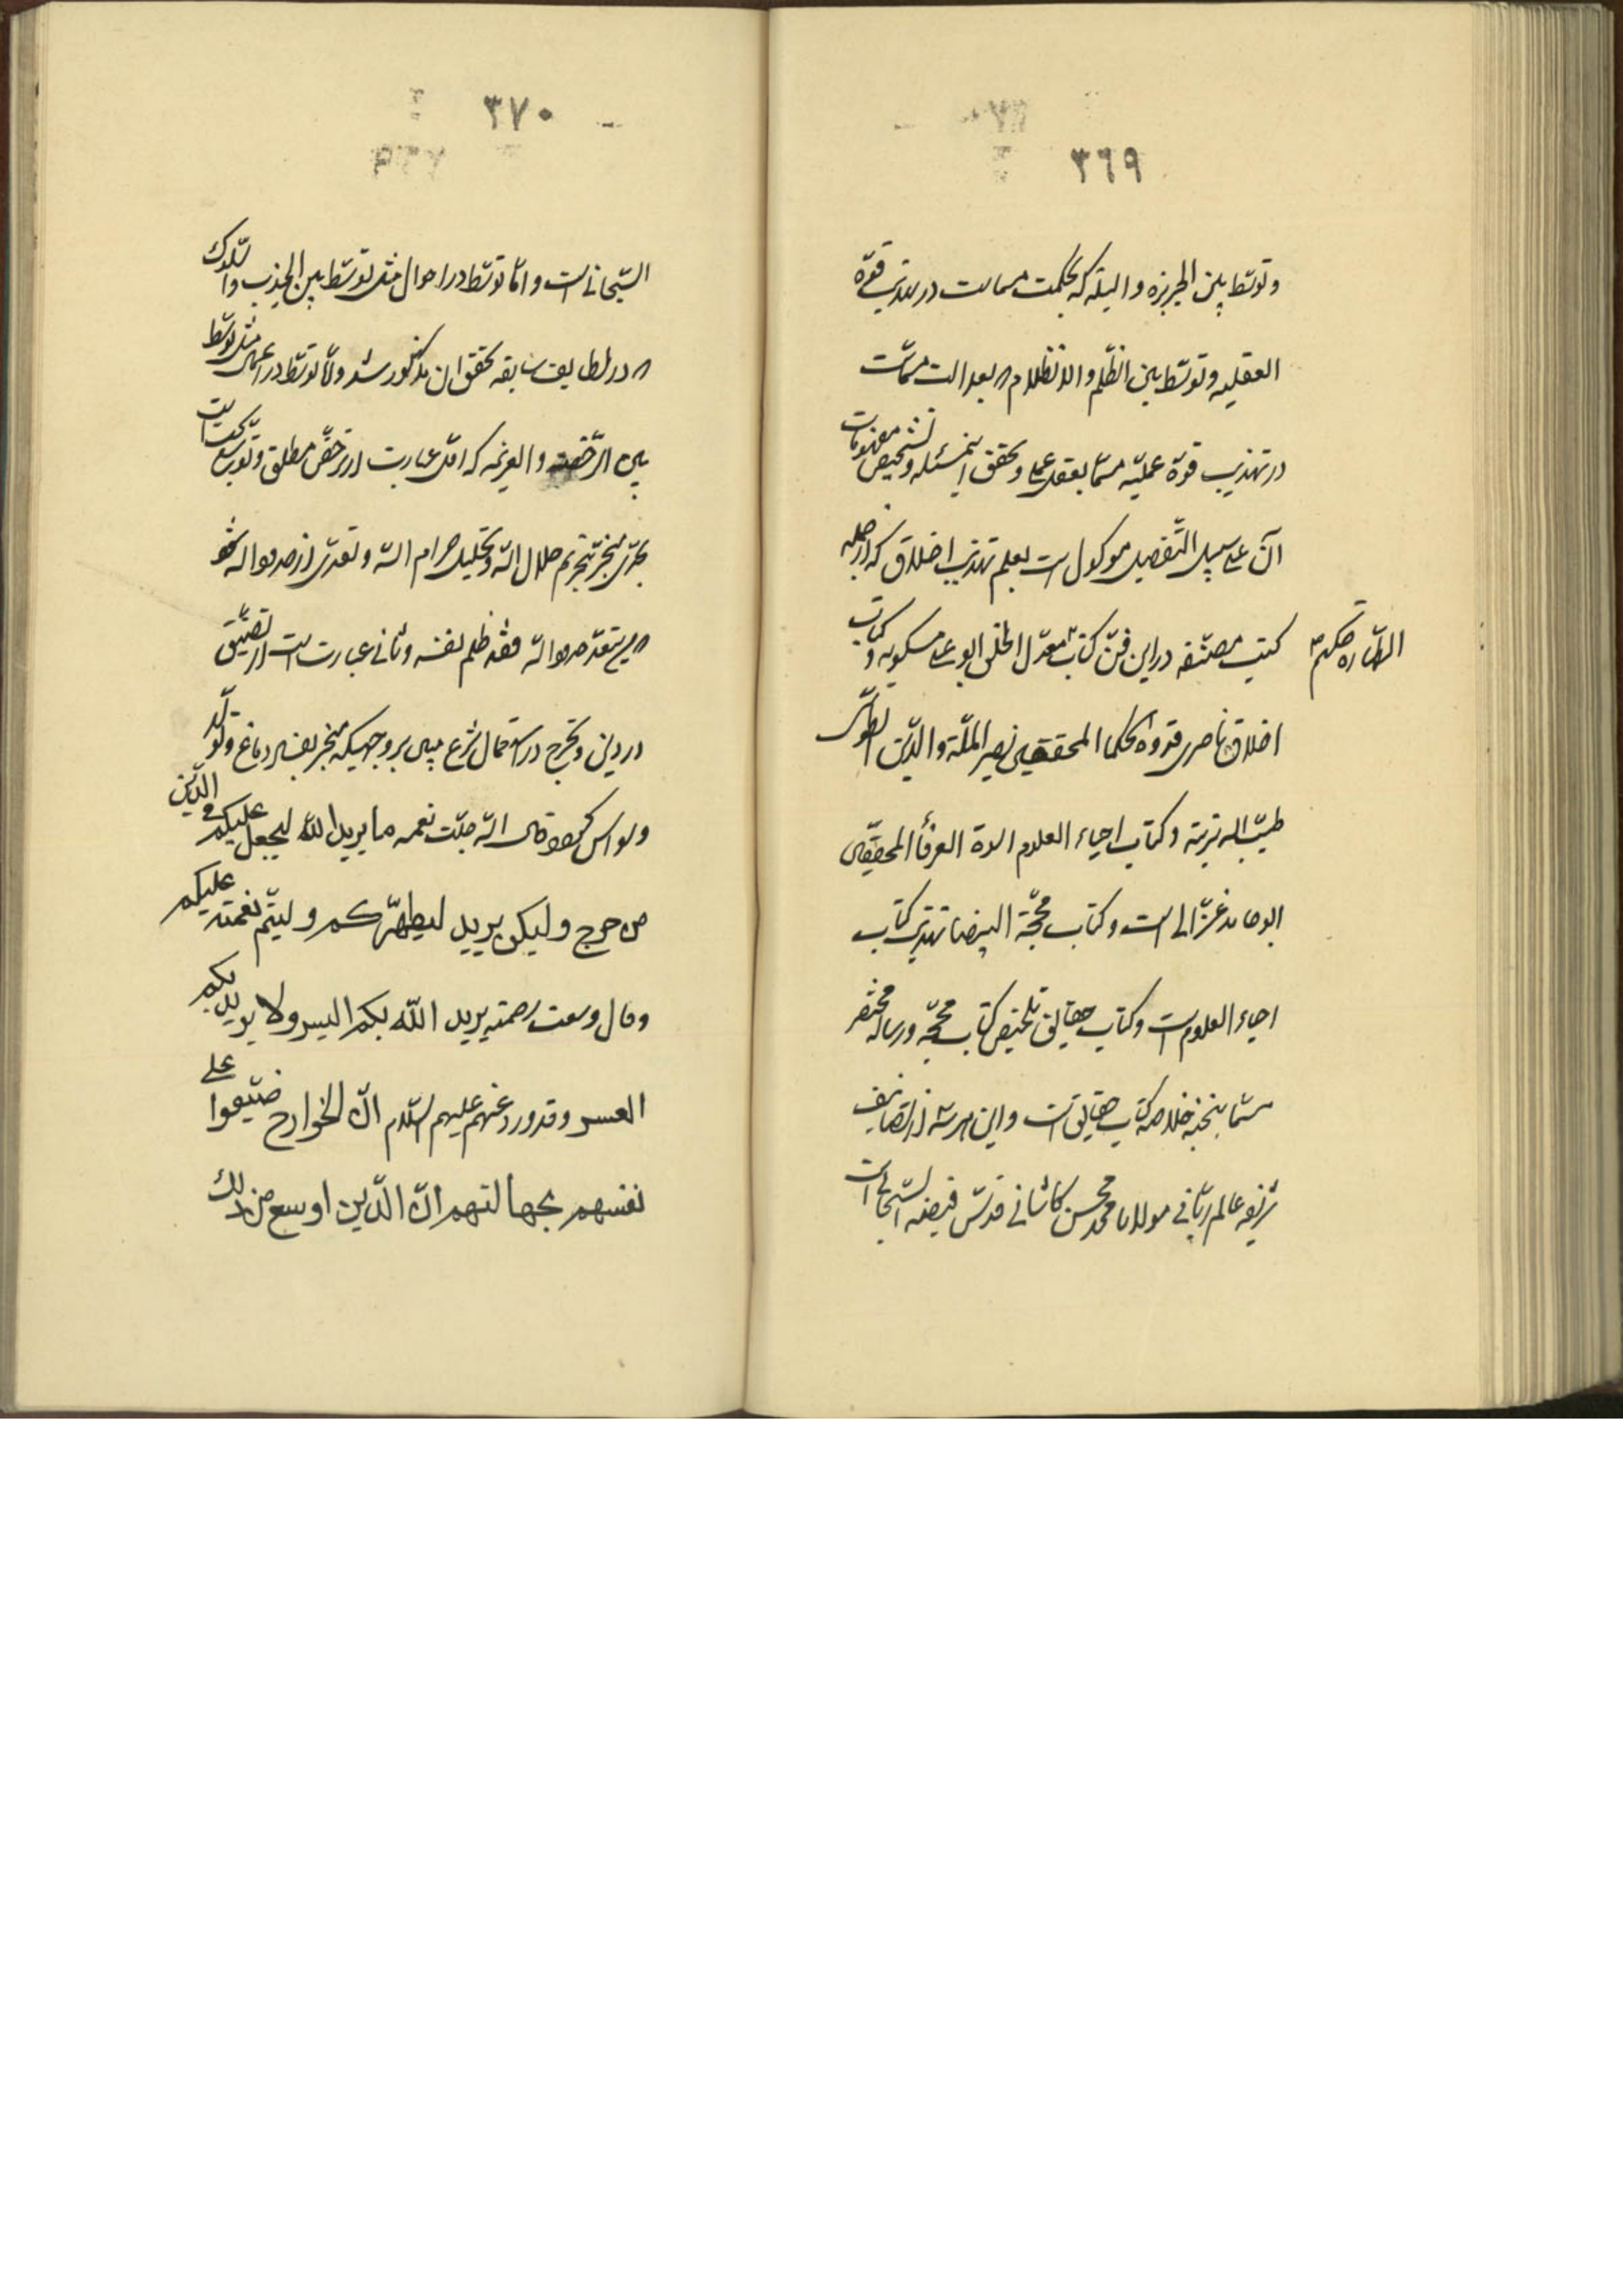 ٣٦٩
وتوسّط بين الجربزه والبله که بحکمت مسمات در تهذیب قوّه
العقلیه وتوسّط بین الظّلم والانظلام که بعدالت مسمّات
در تهذیب قوّة عملیّه مسمّا بعقل عملی وتحقق اینمسئله وتشخیص مفهومات
آن علی سبیل التّفصیل موکول است بعلم تهذیب اخلاق که از جمله
کتب مصنّفه در این فنّ کتاب ابو علی مسکویه و کتاب
الطّهاره حکیم
اخلاق ناصری قدوة الحکما المحققین نصیر الملّة والدّین الطوسی
طیّب الله تربته وکتاب احیاء العلوم العرفأ المحققین
ابو حامد غزّالی است وکتاب محجّة البیضا تهذیب کتاب
احیاء العلوم است وکتاب حقایق تلخیص کتاب محجّه ورساله مختصر
مسمّا بنخبه خلاصه کتاب حقایق است واین هرسه از تصانیف
شریفه عالم ربّانی مولانا محمد محسن کاشانی قدّس فیضه
٣٧٠
السّبحانی است وامّا توسّط در احوال مثل توسّط بین الجذب والسّلوک
که در لطایف سابقه تحقق ان مذکور شد وامّا توسّط در اعمال مثل توسّط
بین الرّخصه والعزیمه که اوّل عبارت از ترخّص مطلق وتوسّع
منجرّ بتحریم حلال اللّه وتحلیل حرام اللّه وتعدّی از حدود اللّه شود
که من یتعدّ حدود اللّه فقد ظلم نفسه وثانی عبارت است از تضییق
در دین وتحرّج در استعمال شرع مبین بر وجهیکه منجر بفساد دماغ وتولّد
وسواس گردد وقال اللّه جلّت نعمه ما یرید اللّٰه لیجعل علیکم فی الدّین
من حرج ولیکن یرید لیطهّرکم ولیتم نعمته علیکم
وقال وسعت رحمته یرید اللّٰه بکم الیسر ولا یرید بکم
العسر وقد ورد عنهم علیهم السّلام انّ الخوارج ضیّقوا علی
نفسهم بجهالتهم انّ الدّین اوسع من ذلك